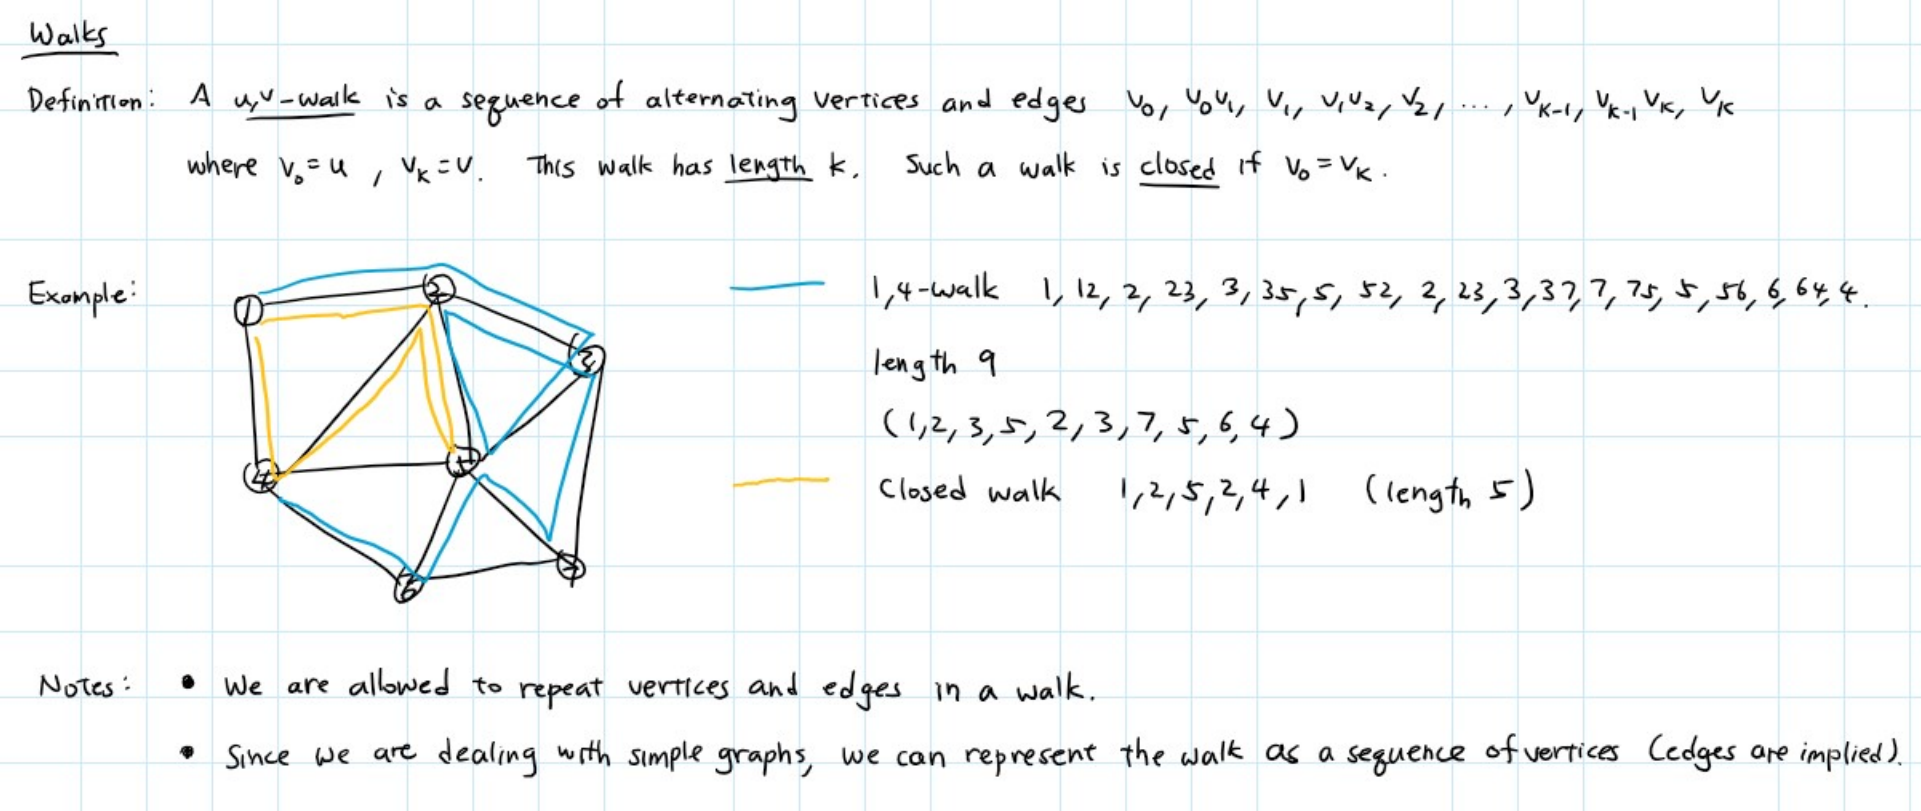 Walks
Definition: A u,v-walk is a sequence of alternating vertices and edges v₀, v₀v₁, v₁, v₁v₂, v₂, ..., vₖ₋₁, vₖ₋₁vₖ, vₖ
where v₀=u, vₖ=v. This walk has length k. Such a walk is closed if v₀=vₖ.
Example:
1
2
3
4
5
6
7
1,4-walk 1, 12, 2, 23, 3, 35, 5, 52, 2, 23, 3, 37, 7, 75, 5, 56, 6, 64, 4.
length 9
(1,2,3,5,2,3,7,5,6,4)
Closed walk 1,2,5,2,4,1 (length 5)
Notes: • We are allowed to repeat vertices and edges in a walk.
• Since we are dealing with simple graphs, we can represent the walk as a sequence of vertices (edges are implied).